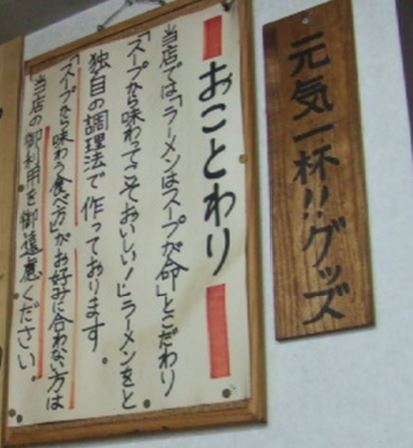 元気一杯!!グッズ
おことわり
当店では「ラーメンはスープが命」とこだわり
「スープから味わってこそおいしい!」ラーメンをと
独自の調理法で作っております。
「スープから味わう食べ方」がお好みに合わない方は
当店の御利用を御遠慮ください。